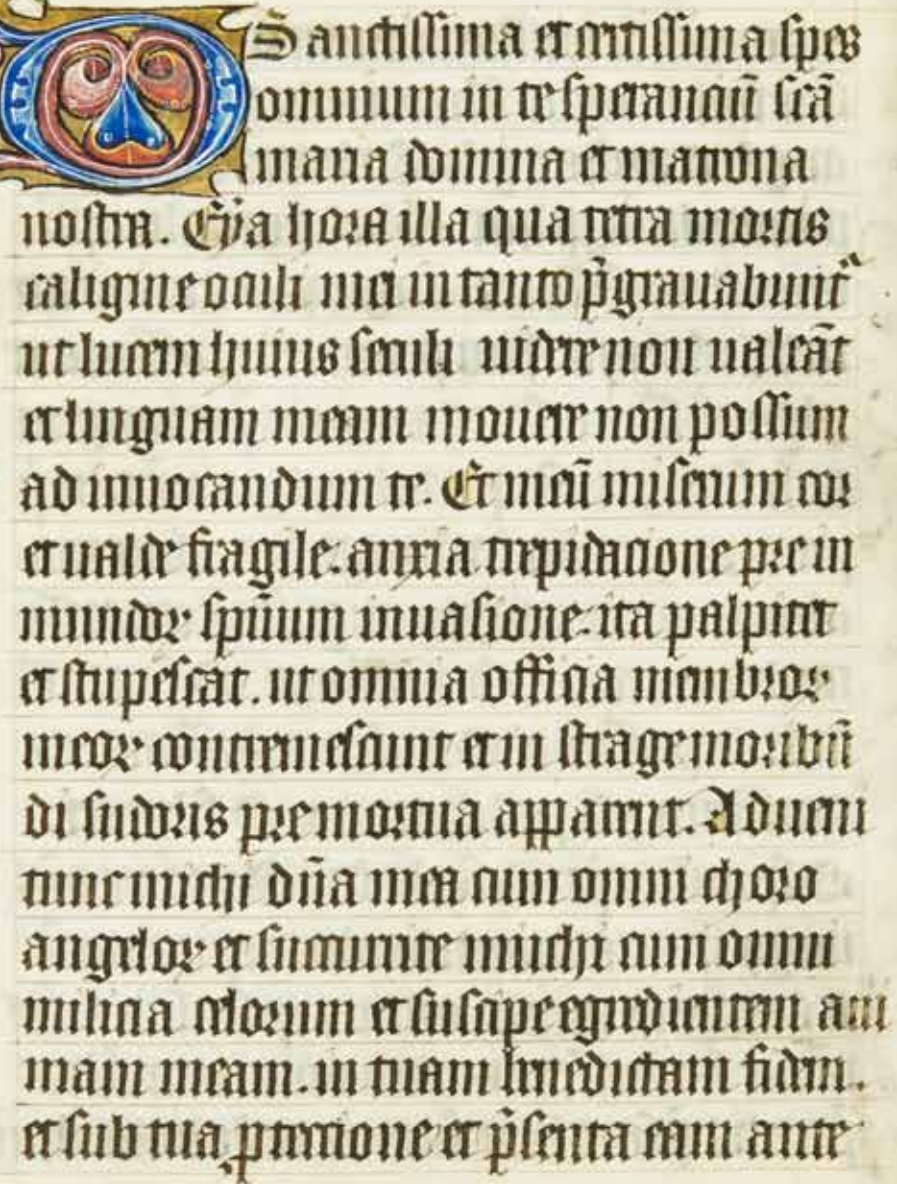 O Sanctissima et certissima spes
omnium in te speranciū scā
maria domina et matrona
nostra. Eya hora illa qua tetra mortis
caligine oculi mei in tanto p̄grauabunt᷑
ut lucem huius seculi uidere non ualeāt
et linguam meam mouere non possum
ad inuocandum te. Et meū miserum cor
et ualde fragile: anxia trepidacione pre in
mundoꝝ spūum inuasione: ita palpitet
et stupescat. ut omnia officia menbroꝝ
meoꝝ contremescunt et in strage moribū
di sudoris pre mortua apparent. Adueni
tunc michi dn̄a mea cum omni choro
angeloꝝ et succurrite michi cum omni
milicia celorum et suscipe egredientem ani
mam meam. in tuam benedictam fidem.
et sub tua ꝓtectione et p̄senta eam ante